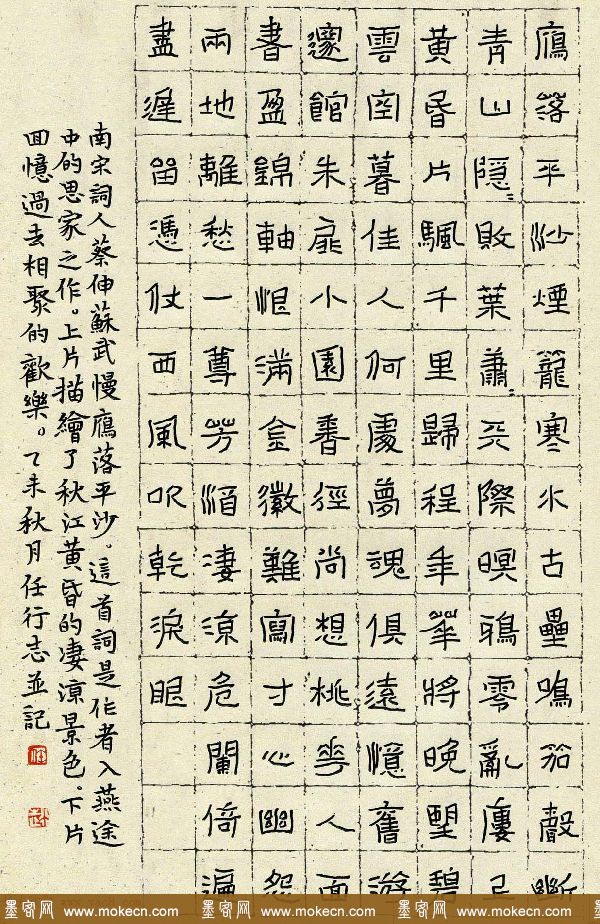 鴈落平沙煙籠寒水古壘鳴笳聲斷
青山隱〻敗葉蕭〻天際暝鴉零亂廔上
黃昏片颿千里歸程年華將晚望碧
雲空暮佳人何處夢魂俱遠憶舊遊
邃館朱扉小園香徑尚想桃華人面
書盈錦軸恨滿金徽難寫寸心幽怨
兩地離愁一尊芳酒淒涼危闌倚遍
盡遲留憑仗西風吹乾淚眼
南宋詞人蔡伸蘇武慢鴈落平沙。這首詞是作者入燕途
中的思家之作。上片描繪了秋江黃昏的淒涼景色。下片
回憶過去相聚的歡樂。乙未秋月任行志並記
墨客网 www.mokecn.com 墨客网 www.mokecn.com 墨客网 www.mokecn.com 墨客网 www.mokecn.com